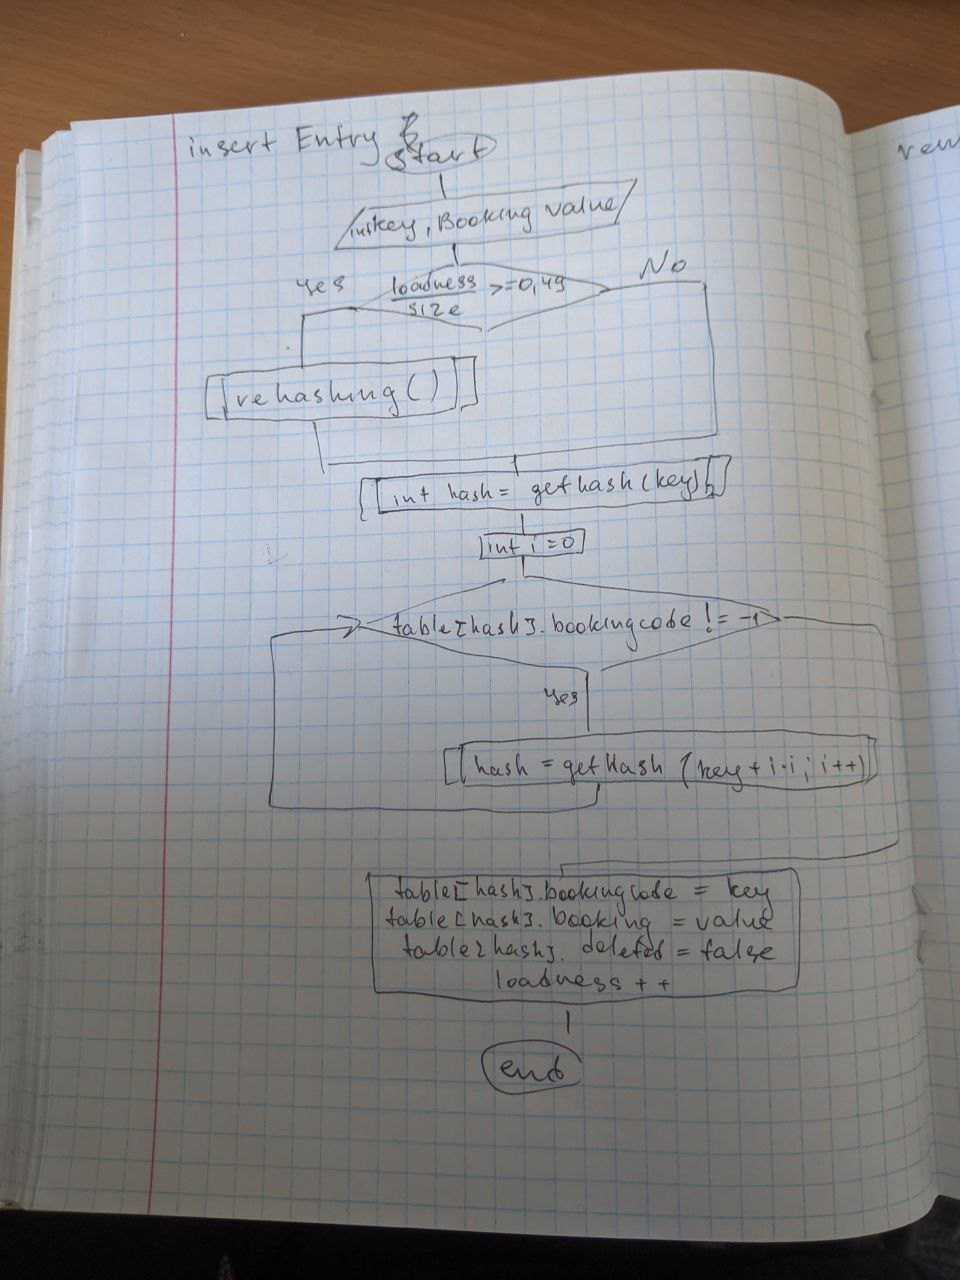 insert Entry
start
int key, Booking value
yes
loadness
size
>=0,49
No
rehashing()
int hash = gethash(key)
int i=0
table[hash].bookingcode != -1
yes
hash = getHash (key + i·i; i++)
table[hash].bookingcode = key
table[hash].booking = value
table[hash]. deleted = false
loadness ++
end